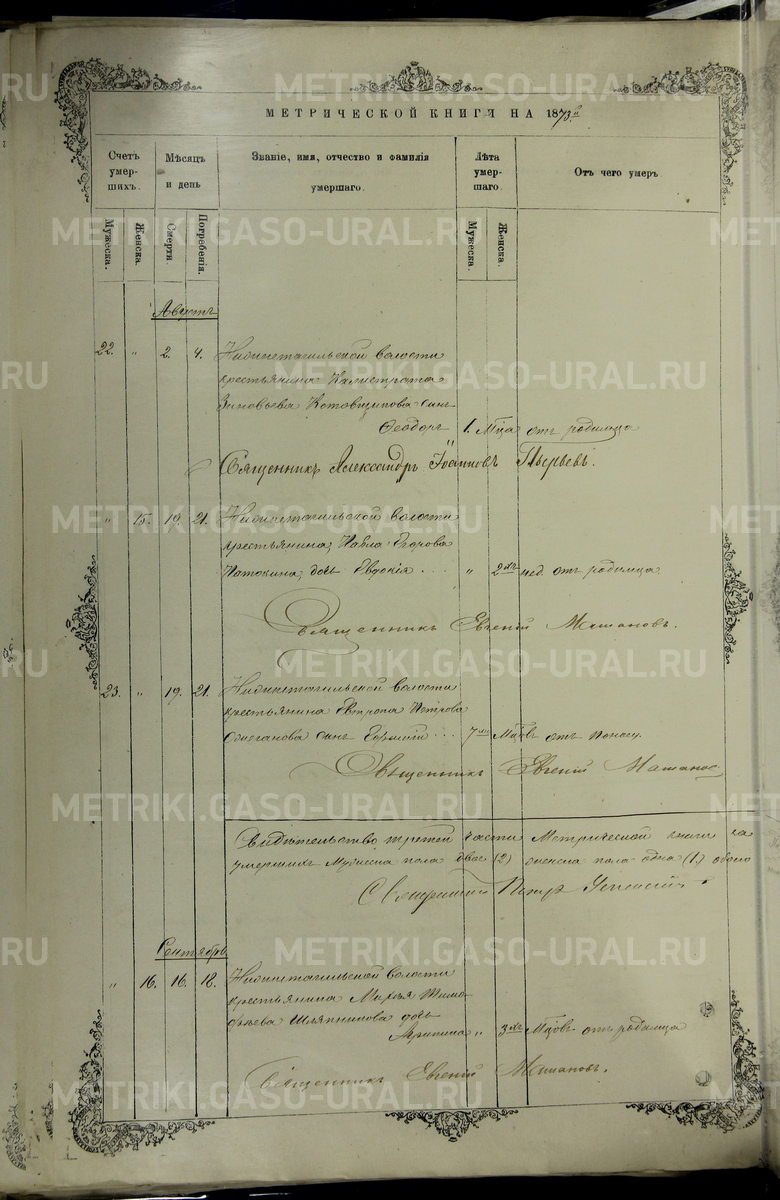 МЕТРИЧЕСКОЙ КНИГИ НА 1873й
Счетъ умершихъ.
Мѣсяцъ и день
Званіе, имя, отчество и фамилія умершаго.
Лѣта умершаго.
Отъ чего умеръ
Мужеска.
Женска.
Смерти
Погребенія.
Мужеска.
Женска.
Августъ
22. " 2. 4. Нижнетагильской волости
крестьянина Калистрата
Зиновьева Котовщикова сынъ
Феодоръ 1. Мца отъ родимца
Священникъ Александръ Іоанновъ
" 15. 19. 21. Нижнетагильской волости
крестьянина, Павла Егорова
дочь Евдокія . . . . " 2хъ нед. отъ родимца
Священникъ Евгеній
23. " 19. 21. Нижнетагильской волости
крестьянина Петрова
сынъ . . . 7ми Мцовъ отъ поносу.
Священникъ Евгеній
Свидѣтельство третей части Метрической книги за
умершихъ Мужеска пола двое (2) женска пола одна (1.) обоего
Священникъ Петръ
Сентябрь
" 16. 16. 18. Нижнетагильской волости
крестьянина Тимофеева Шляпникова дочь
" 3хъ Мцовъ отъ родимца
Священникъ Евгеній
METRIKI.GASO-URAL.RU